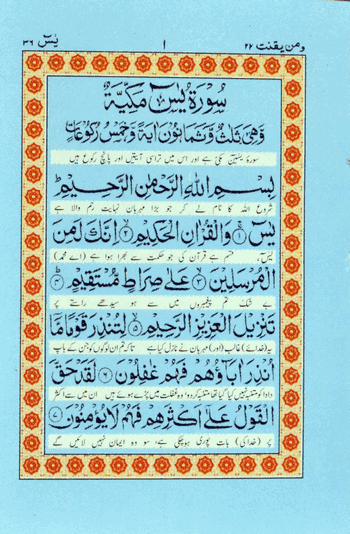 یٰسٓ ۳۶ ۱ ومن یقنت ۲۲
سُوْرَةُ يٰسٓ مَكِّيَّةٌ
وَهِىَ ثَلٰثٌ وَّثَمَانُوْنَ اٰيَةً وَّخَمْسُ رُكُوْعَاتٍ
سورۂ یٰسین مکی ہے اور اس میں تراسی آیتیں اور پانچ رکوع ہیں
بِسْمِ اللّٰهِ الرَّحْمٰنِ الرَّحِيْمِ
شروع اللہ کا نام لے کر جو بڑا مہربان نہایت رحم والا ہے
يٰسٓ ۚ‏﴿۱﴾ وَالْقُرْاٰنِ الْحَكِيْمِ ۙ‏﴿۲﴾ اِنَّكَ لَمِنَ
یٰسٓ، قسم ہے قرآن کی جو حکمت سے بھرا ہوا ہے (اے محمدؐ)
الْمُرْسَلِيْنَ ۙ‏﴿۳﴾ عَلٰى صِرَاطٍ مُّسْتَقِيْمٍ ؕ‏﴿۴﴾
بے شک تم پیغمبروں میں سے ہو سیدھے راستے پر
تَنْزِيْلَ الْعَزِيْزِ الرَّحِيْمِ ۙ‏﴿۵﴾ لِتُنْذِرَ قَوْمًا مَّاۤ
یہ (خدائے) غالب (اور) مہربان نے نازل کیا ہے تاکہ تم ان لوگوں کو جن کے باپ
اُنْذِرَ اٰبَآؤُهُمْ فَهُمْ غٰفِلُوْنَ ﴿۶﴾ لَقَدْ حَقَّ
دادا کو متنبہ نہیں کیا گیا تھا متنبہ کر دو وہ غفلت میں پڑے ہوئے ہیں ان میں سے اکثر
الْقَوْلُ عَلٰٓى اَكْثَرِهِمْ فَهُمْ لَا يُؤْمِنُوْنَ ﴿۷﴾
پر (خدا کی) بات پوری ہو چکی ہے، سو وہ ایمان نہیں لائیں گے